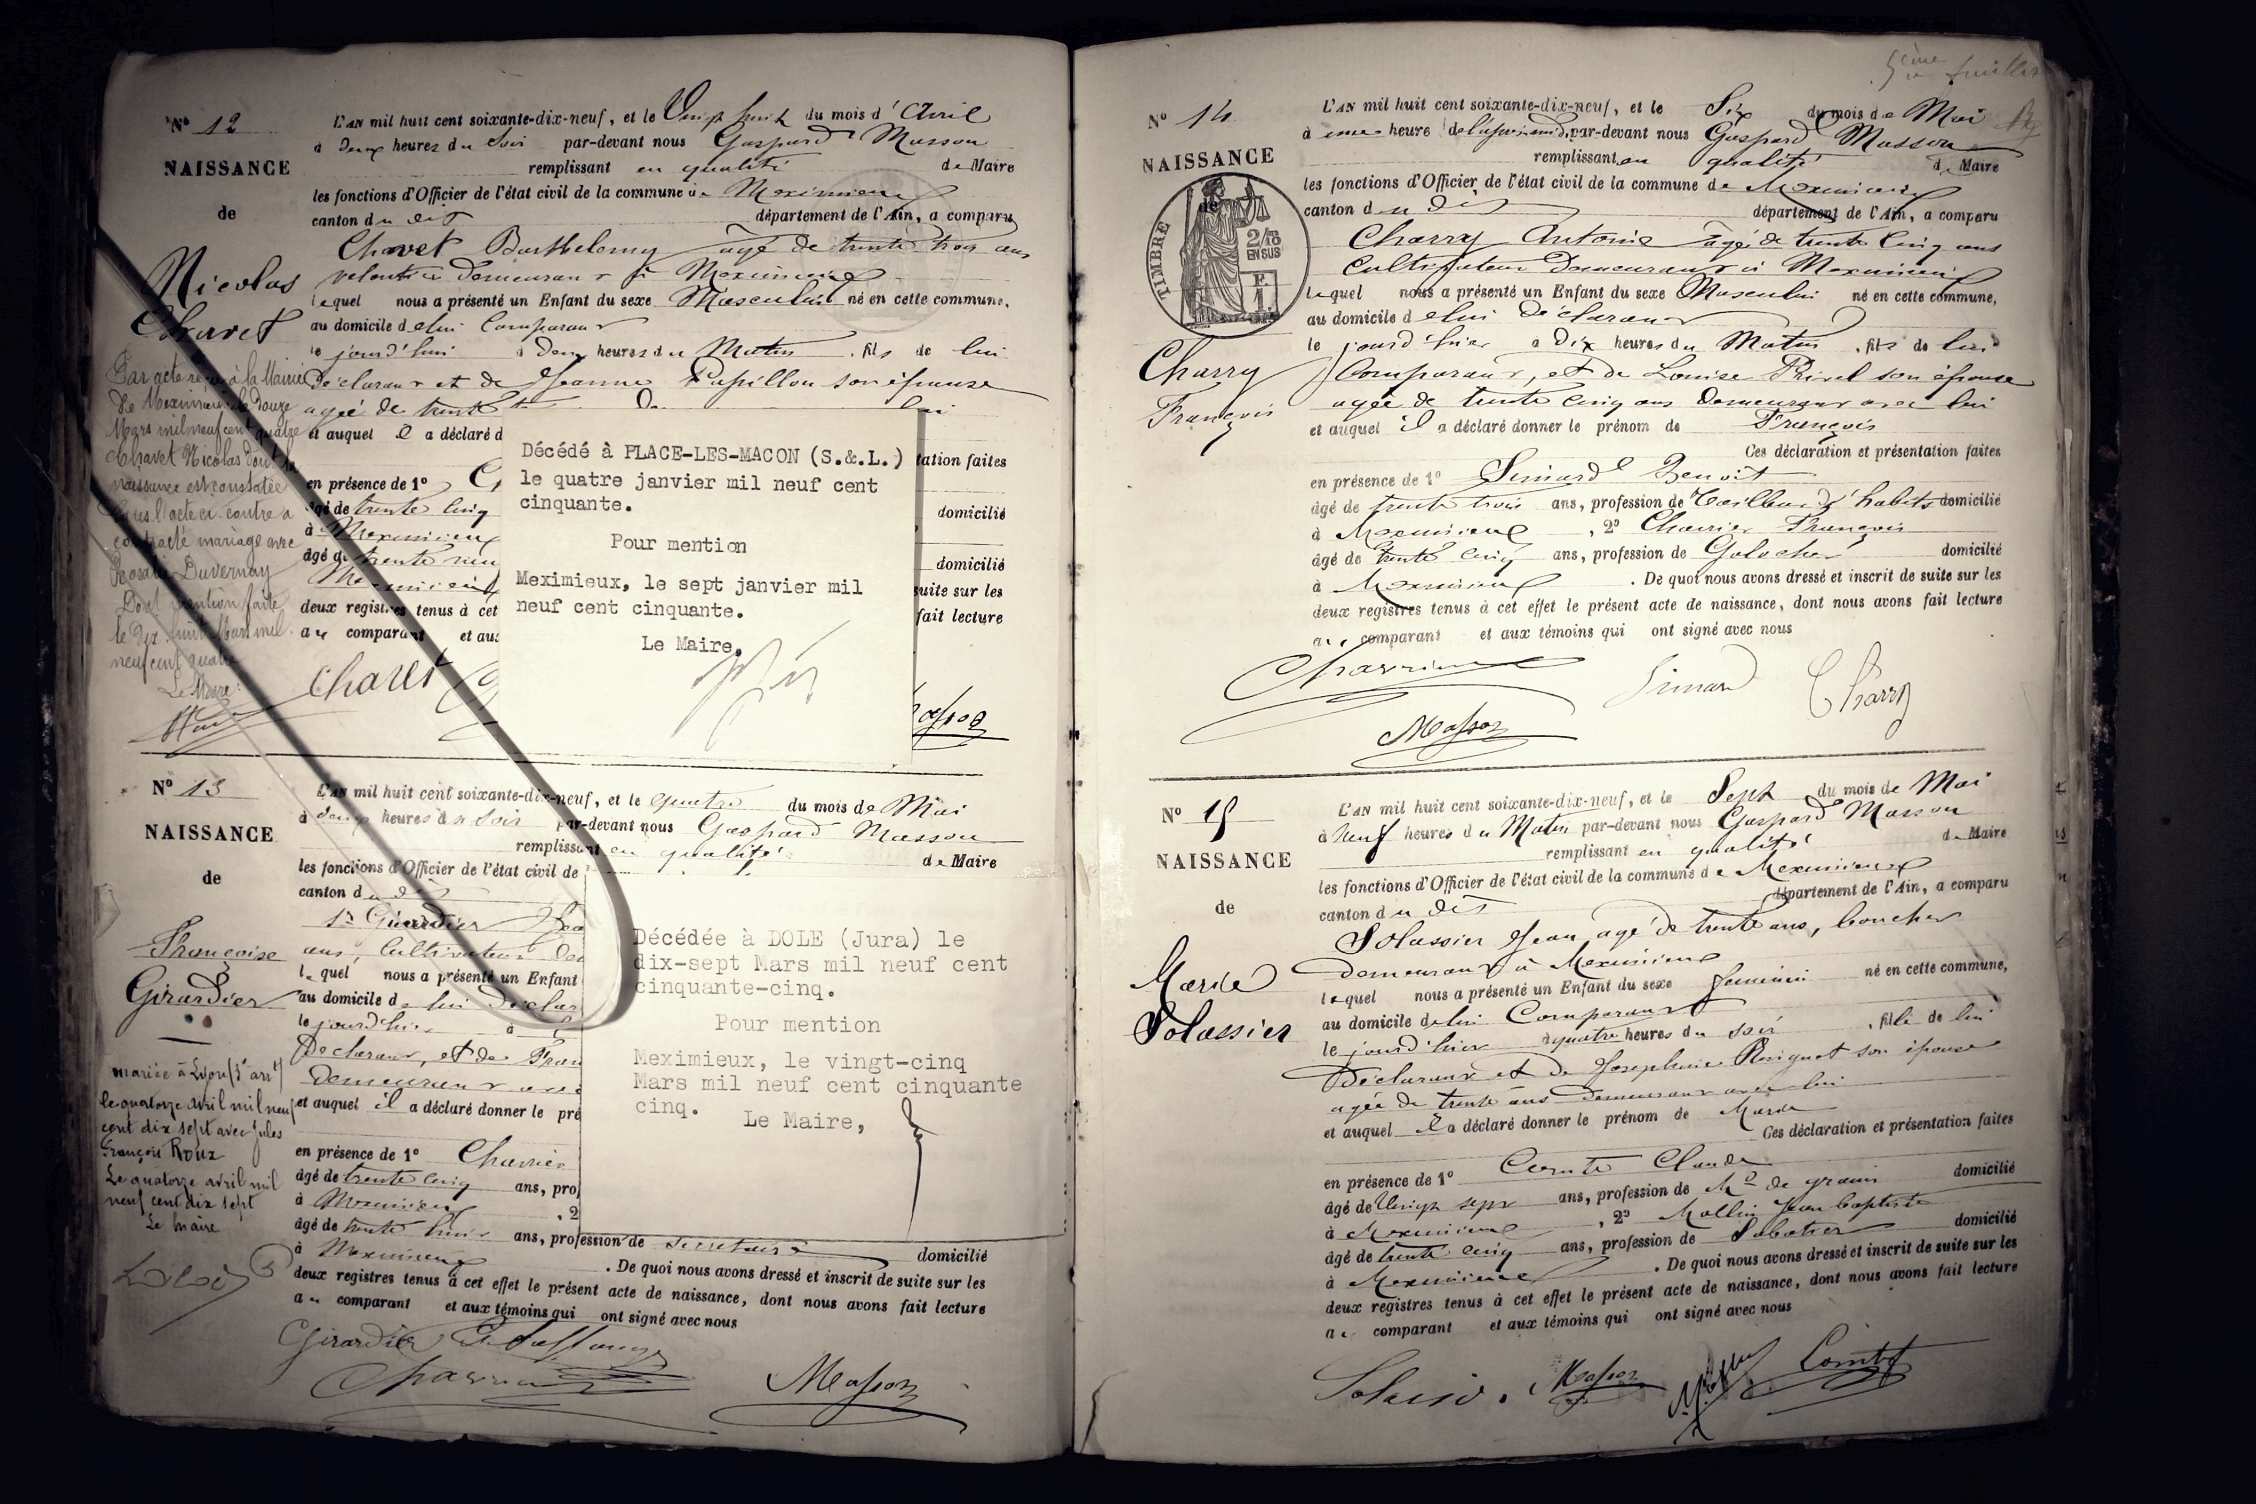 Nº 12
NAISSANCE
de
Nicolas
Chavet
L'AN mil huit cent soixante-dix-neuf, et le Vingt huit du mois d' Avril
à deux heures du Soir par-devant nous Gaspard Masson
remplissant en qualité de Maire
les fonctions d'Officier de l'état civil de la commune de Meximieux
canton du dit département de l'Ain, a comparu
Chavet Barthelemy âgé de trente trois ans
demeurant à Meximieux
lequel nous a présenté un Enfant du sexe Masculin né en cette commune,
au domicile de lui Comparant
le jourd'hui à deux heures du Matin, fils de lui
Déclarant et de Jeanne Papillon son épouse
agée de trente
et auquel il a déclaré d
tation faites
en présence de 1º
âgé de trente cinq domicilié
à Meximieux
âgé de trente neuf domicilié
Meximieux suite sur les
deux registres tenus à cet fait lecture
au comparant et aux
Chavet
Masson
Par acte reçu à la Mairie
de Meximieux le douze
Mars mil neuf cent quatre
Chavet Nicolas dont la
naissance est constatée
dans l'acte ci-contre a
contracté mariage avec
Rosalie Duvernay
Dont mention faite
le dix huit Mars mil
neuf cent quatre
Le Maire:
Décédé à FLACE-LES-MACON (S.&.L.)
le quatre janvier mil neuf cent
cinquante.
Pour mention
Meximieux, le sept janvier mil
neuf cent cinquante.
Le Maire.
Nº 13
NAISSANCE
de
Françoise
Girardier
L'AN mil huit cent soixante-dix-neuf, et le quatre du mois de Mai
à deux heures du Soir par-devant nous Gaspard Masson
remplissant en qualité de Maire
les fonctions d'Officier de l'état civil de
canton du dit
Girardier
ans, Cultivateur
lequel nous a présenté un Enfant
au domicile de lui déclar
le jourd'hier à
Déclarant, et de Fran
demeurant avec
et auquel il a déclaré donner le pré
en présence de 1º Charrier
âgé de trente cinq ans, pro
à Meximieux, 2
âgé de trente huit ans, profession de secretaire domicilié
à Meximieux. De quoi nous avons dressé et inscrit de suite sur les
deux registres tenus à cet effet le présent acte de naissance, dont nous avons fait lecture
au comparant et aux témoins qui ont signé avec nous
Girardier
Masson
mariée à Lyon (3e arrt)
le quatorze avril mil neuf
cent dix sept avec Jules
François Roux
Le quatorze avril mil
neuf cent dix sept
Le Maire
Décédée à DOLE (Jura) le
dix-sept Mars mil neuf cent
cinquante-cinq.
Pour mention
Meximieux, le vingt-cinq
Mars mil neuf cent cinquante
cinq.
Le Maire,
5ème feuillet
Nº 14
NAISSANCE
de
TIMBRE
2/10
EN SUS
Charry
François
L'AN mil huit cent soixante-dix-neuf, et le Six du mois de Mai
à une heure de l'après midi, par-devant nous Gaspard Masson
remplissant en qualité de Maire
les fonctions d'Officier de l'état civil de la commune de Meximieux
canton du dit département de l'Ain, a comparu
Charry Antoine âgé de trente cinq ans
Cultivateur demeurant à Meximieux
lequel nous a présenté un Enfant du sexe Masculin né en cette commune,
au domicile de lui Déclarant
le jourd'hier à Dix heures du Matin, fils de lui
Comparant, et de Louise son épouse
agée de trente cinq ans Demeurant avec lui
et auquel il a déclaré donner le prénom de François
Ces déclaration et présentation faites
en présence de 1º Simard Benoit
âgé de trente trois ans, profession de Tailleur d'habits domicilié
à Meximieux, 2º Charrier François
âgé de trente cinq ans, profession de Galocher domicilié
à Meximieux. De quoi nous avons dressé et inscrit de suite sur les
deux registres tenus à cet effet le présent acte de naissance, dont nous avons fait lecture
au comparant et aux témoins qui ont signé avec nous
Charrier
Simard
Charry
Masson
Nº 15
NAISSANCE
de
Marie
Solassier
L'AN mil huit cent soixante-dix-neuf, et le Sept du mois de Mai
à Neuf heures du Matin par-devant nous Gaspard Masson
remplissant en qualité de Maire
les fonctions d'Officier de l'état civil de la commune de Meximieux
canton du dit département de l'Ain, a comparu
Solassier Jean agé de trente ans, boucher
demeurant à Meximieux
lequel nous a présenté un Enfant du sexe féminin né en cette commune,
au domicile de lui Comparant
le jourd'hier à quatre heures du Soir, fille de lui
Déclarant et de Josephine son épouse
agée de trente ans demeurant avec lui
et auquel il a déclaré donner le prénom de Marie
Ces déclaration et présentation faites
en présence de 1º Comte Claude
âgé de Vingt sept ans, profession de Md de grains domicilié
à Meximieux, 2º Mollin Jean Baptiste
âgé de trente cinq ans, profession de Sabotier domicilié
à Meximieux. De quoi nous avons dressé et inscrit de suite sur les
deux registres tenus à cet effet le présent acte de naissance, dont nous avons fait lecture
au comparant et aux témoins qui ont signé avec nous
Masson
Comte